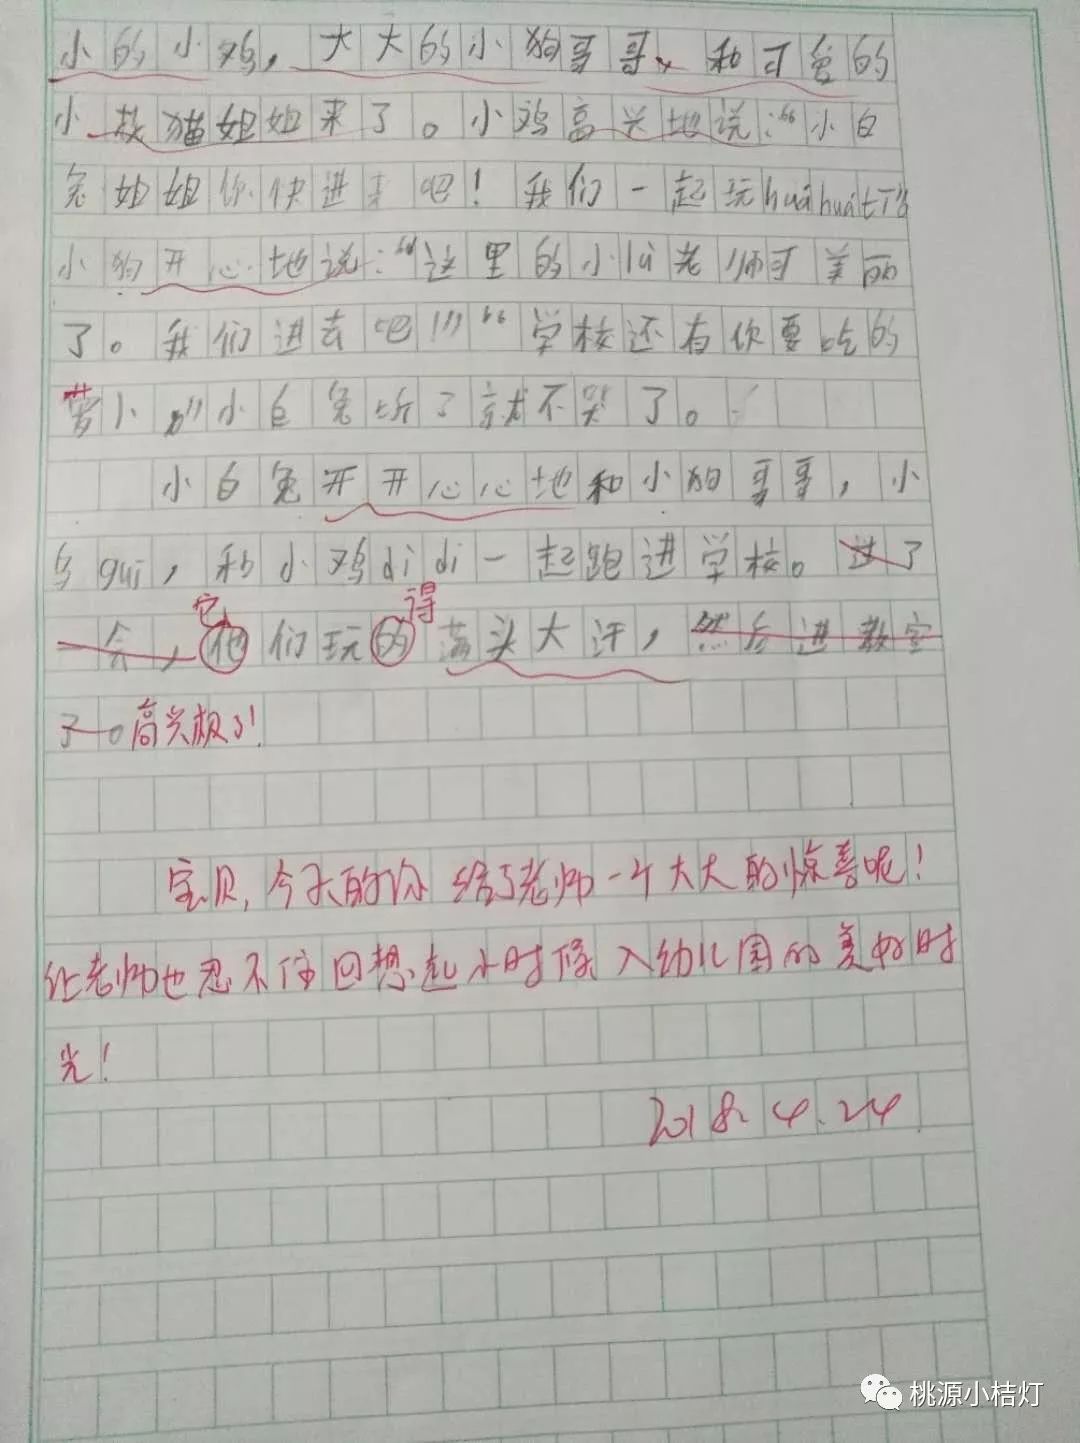 小的小鸡，大大的小狗哥哥、和可爱的
小花猫姐姐来了。小鸡高兴地说：“小白
兔姐姐你快进来吧！我们一起玩huáhuátī
小狗开心地说：“这里的小lù老师可美丽
了。我们进去吧!!!“学校还有你要吃的
萝卜!!!小白兔听了就不哭了。
小白兔开开心心地和小狗哥哥，小
乌guī，和小鸡dìdi一起跑进学校。过了
一会，他们玩的满头大汗，然后进教室
它
得
了。高兴极了！
宝贝，今天的你给了老师一个大大的惊喜呢！
让老师也忍不住回想起小时候入幼儿园的美好时
光！
2018.4.24
桃源小桔灯